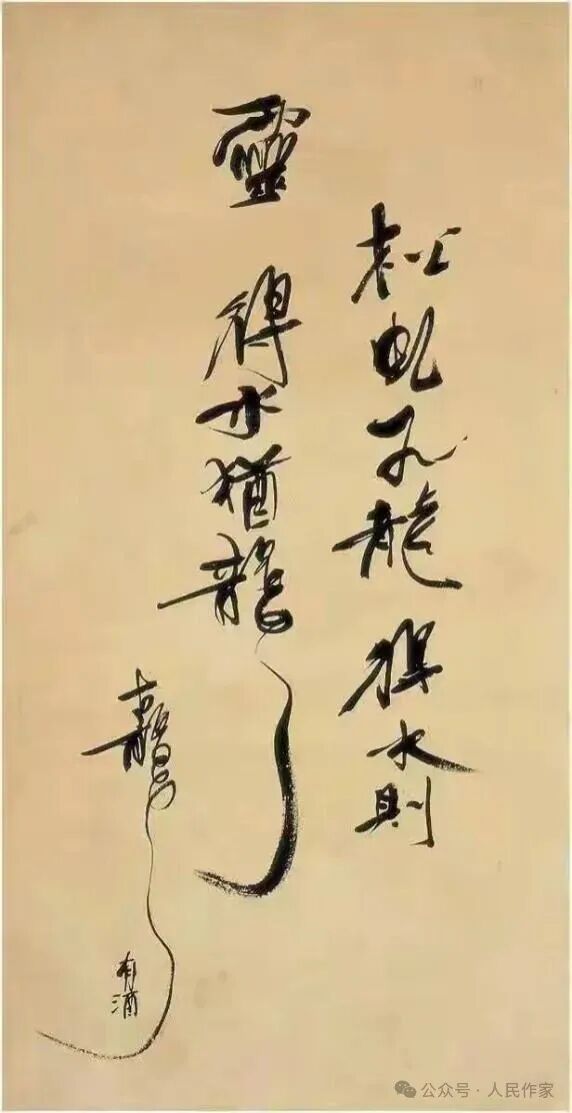 松虬龍得水則
靈得水猶龍
有酒
公众号·人民作家